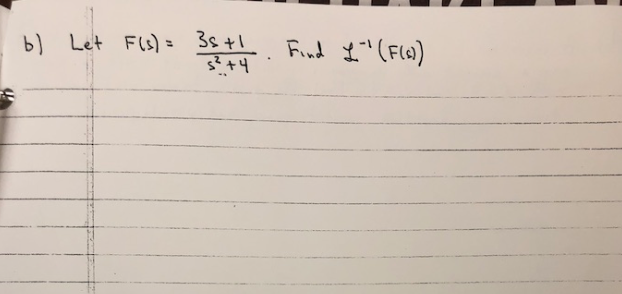 b) Let F(s) = 3s+1 / s²+4 . Find ℒ⁻¹(F(s))